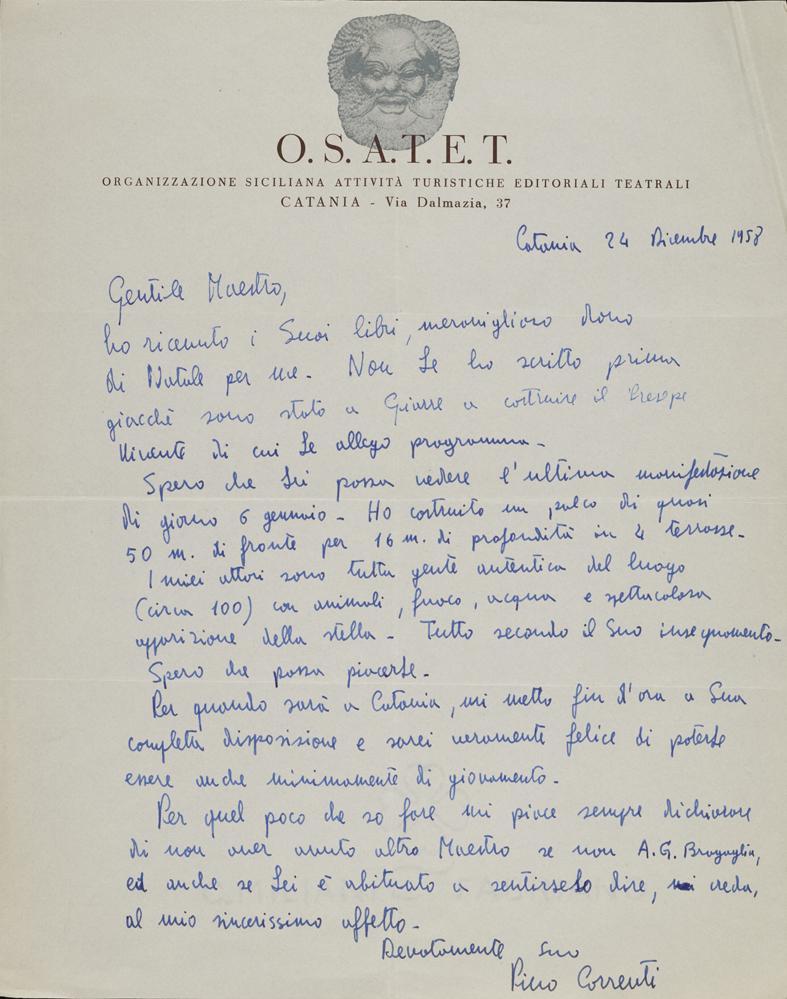 O. S. A. T. E. T.
ORGANIZZAZIONE SICILIANA ATTIVITÀ TURISTICHE EDITORIALI TEATRALI
CATANIA - Via Dalmazia, 37
Catania 24 Dicembre 1958
Gentile Maestro,
ho ricevuto i Suoi libri, meraviglioso dono
di Natale per me. Non Le ho scritto prima
giacché sono stato a Giarre a costruire il Presepe
Vivente di cui Le allego programma.
Spero che Lei possa vedere l'ultima manifestazione
di giorno 6 gennaio. Ho costruito un palco di quasi
50 m. di fronte per 16 m. di profondità in 4 terrasse.
I miei attori sono tutta gente autentica del luogo
(circa 100) con animali, fuoco, acqua e spettacolosa
apparizione della stella. Tutto secondo il Suo insegnamento.
Spero che possa piacerLe.
Per quando sarà a Catania, mi metto fin d'ora a Sua
completa disposizione e sarei veramente felice di poterLe
essere anche minimamente di giovamento.
Per quel poco che so fare mi piace sempre dichiarare
di non aver avuto altro Maestro se non A. G. Bragaglia,
ed anche se Lei è abituato a sentirselo dire, creda,
al mio sincerissimo affetto.
Devotamente Suo
Piero Correnti